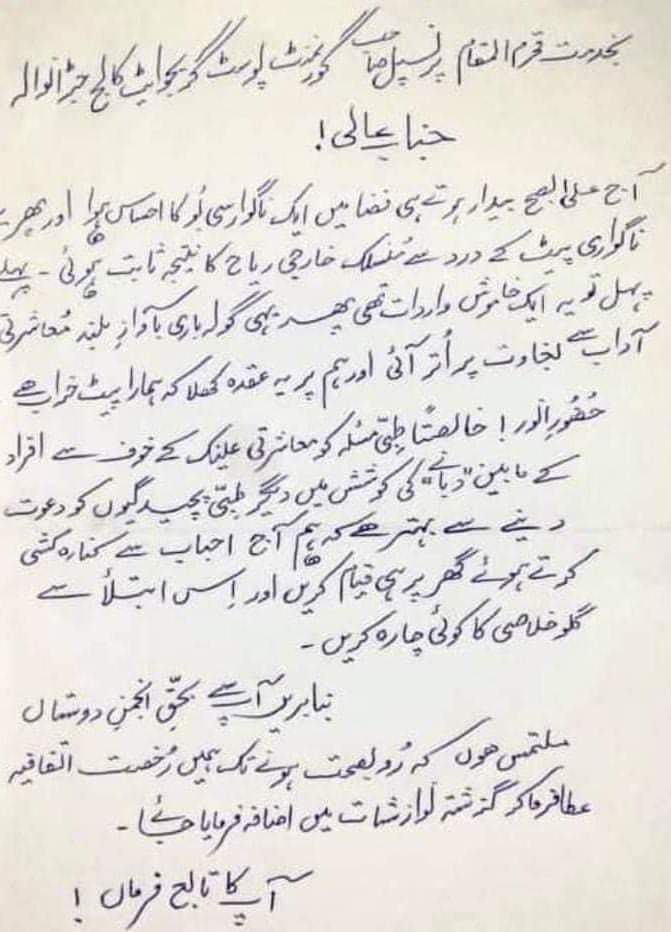 بخدمت محترم المقام پرنسپل صاحب گورنمنٹ پوسٹ گریجوایٹ کالج جڑانوالہ
جنابِ عالی!
آج علی الصبح بیدار ہوتے ہی فضا میں ایک ناگوار سی بُو کا احساس ہوا اور پھر یہ
ناگواری پیٹ کے درد سے مُنسلک خارجی ریاح کا نتیجہ ثابت ہوئی ۔ پہلے
پہل تو یہ ایک خاموش واردات تھی پھر یہی گولہ باری بآوازِ بلند مُعاشرتی
آداب سے بغاوت پر اُتر آئی اور ہم پر یہ عقدہ کھلا کہ ہمارا پیٹ خراب ہے
حُضُورِ انور! خالصتاً طِبّی مسٔلہ کو معاشرتی عینک کے خوف سے افراد
کے مابین "دبانے" کی کوشش میں دیگر طبّی پیچیدگیوں کو دعوت
دینے سے بہتر ہے کہ ہم آج احباب سے کنارہ کشی
کرتے ہوئے گھر پر ہی قیام کریں اور اِس ابتلأ سے
گلو خلاصی کا کوئی چارہ کریں ۔
بنا بریں آپ سے بحقِّ انجمنِ دوستاں
ملتمس ہوں کہ رُو بصحت ہونے تک ہمیں رُخصت اتفاقیہ
عطا فرما کر گذشتہ نوازشات میں اضافہ فرمایا جائے ۔
آپ کا تابع فرماں !